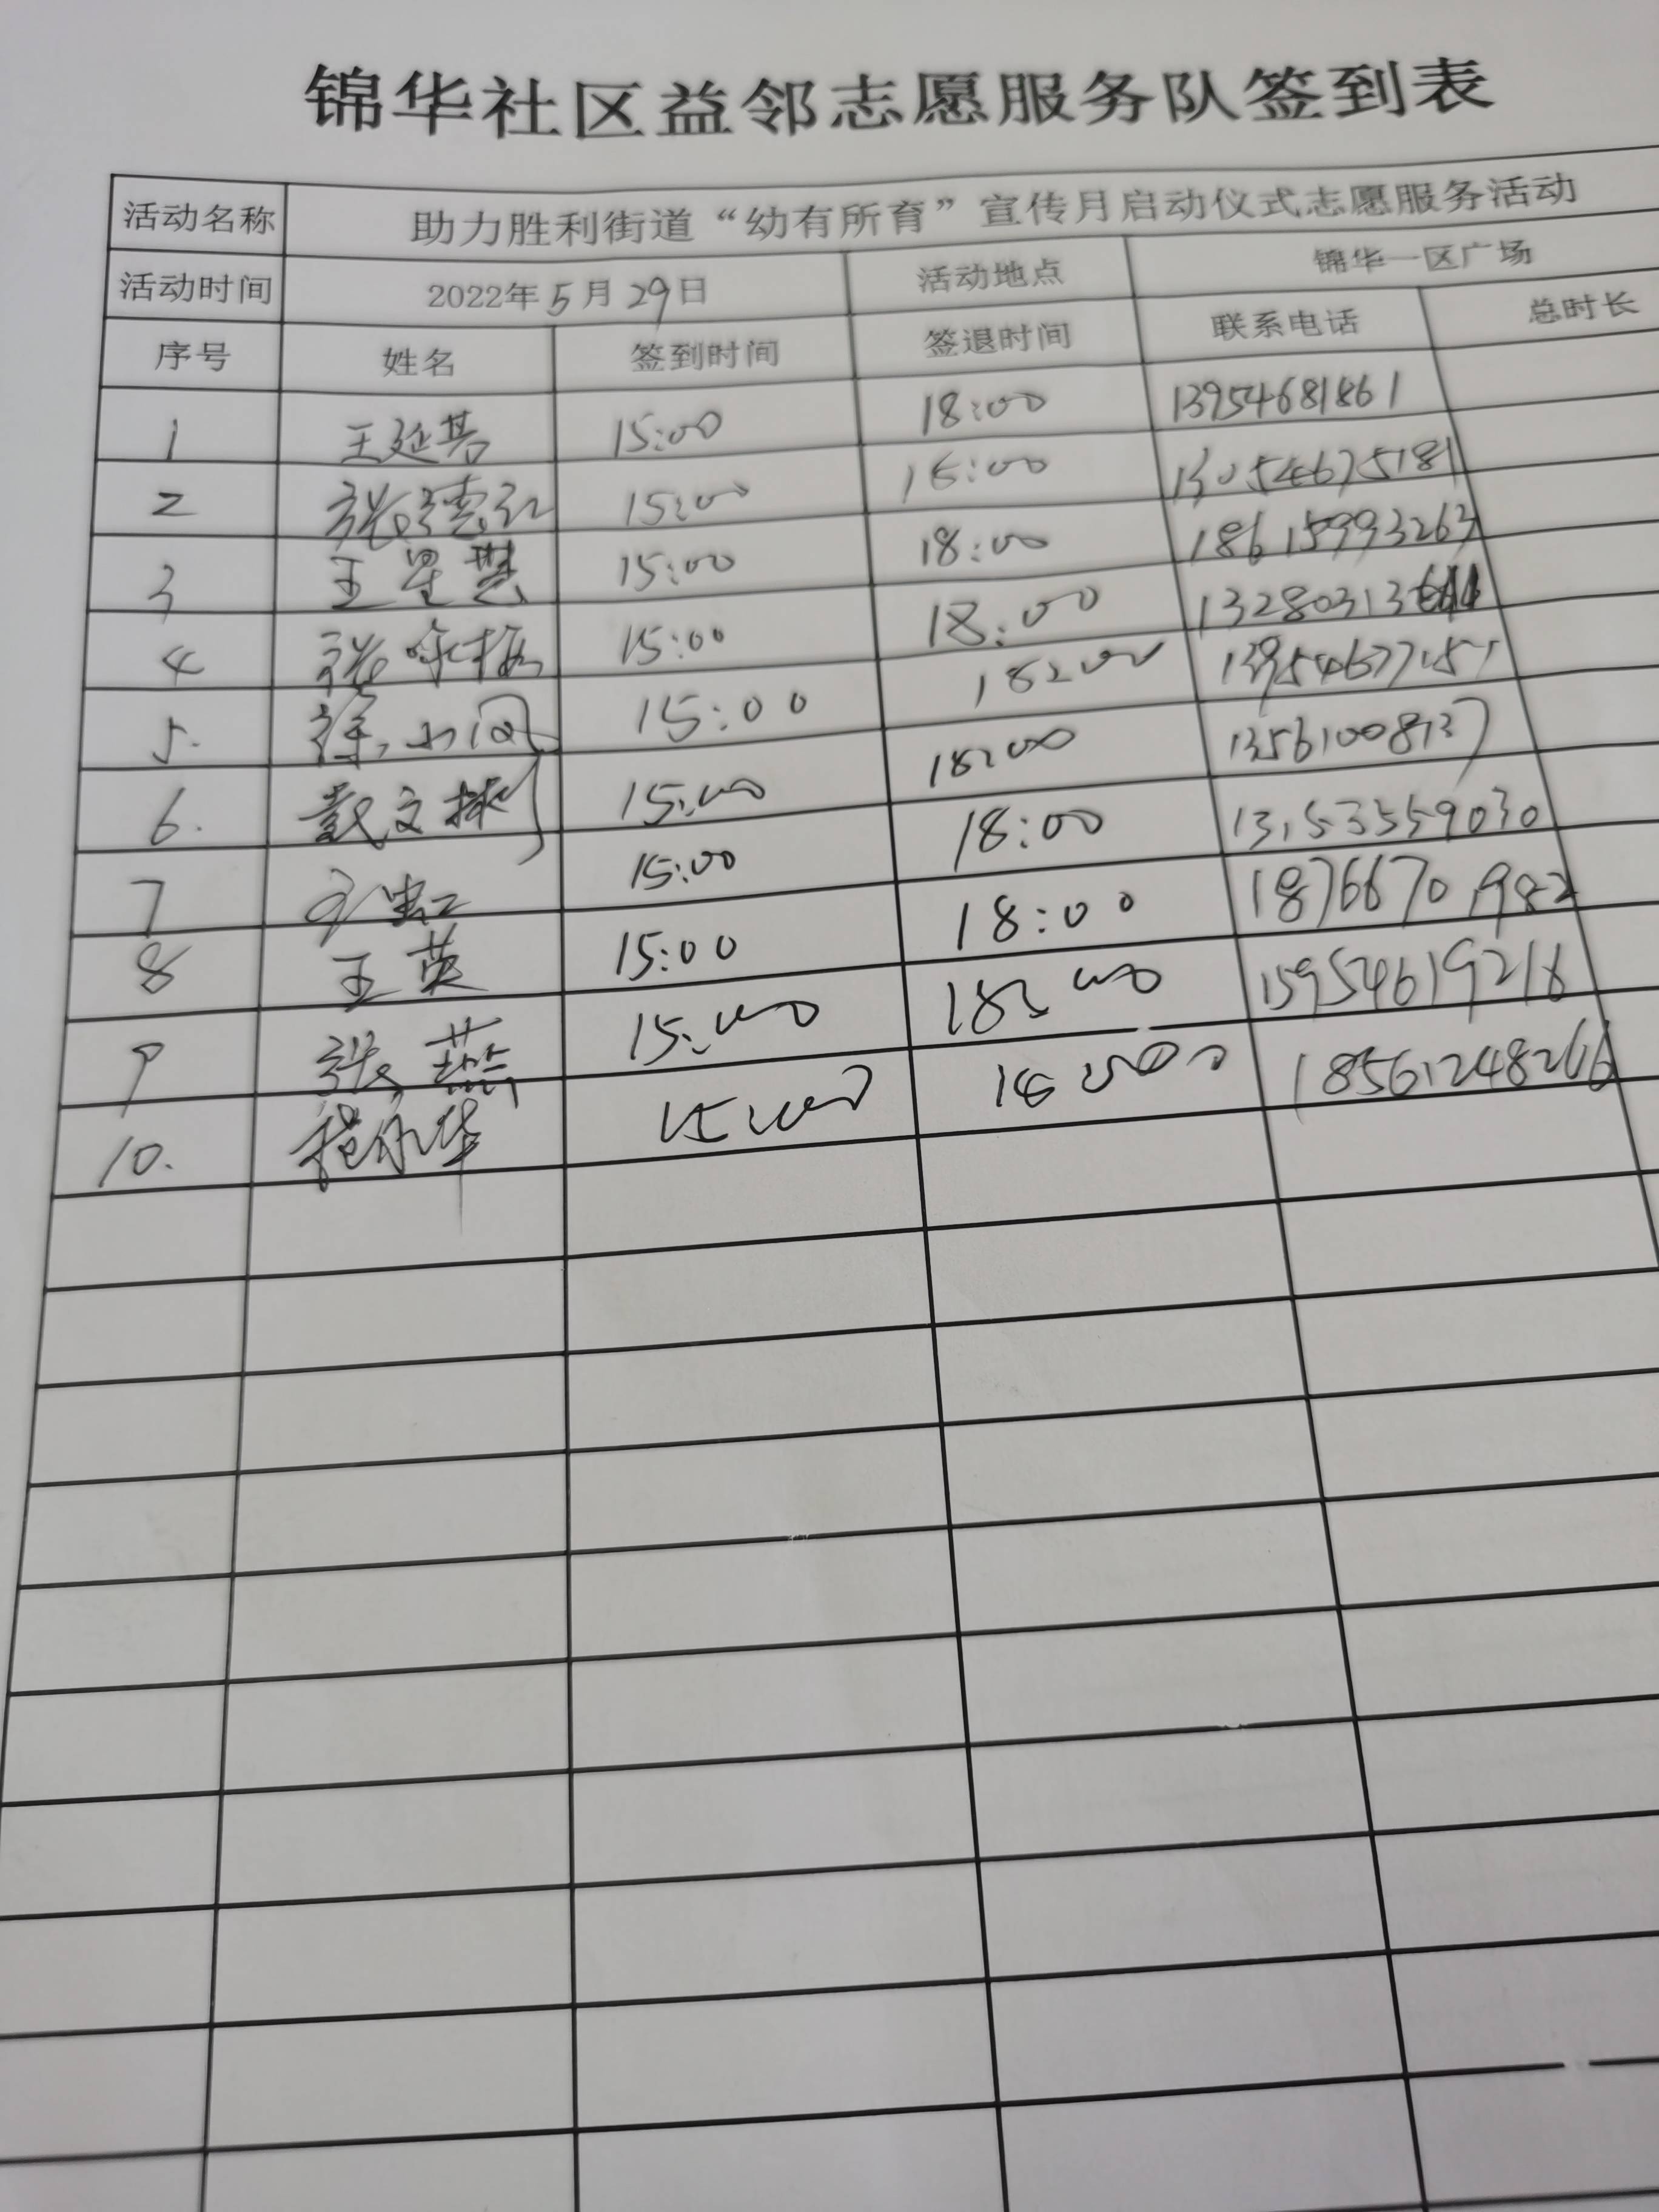 锦华社区益邻志愿服务队签到表
活动名称 助力胜利街道“幼有所育”宣传月启动仪式志愿服务活动
活动时间 2022年5月29日 活动地点 锦华一区广场
序号 姓名 签到时间 签退时间 联系电话 总时长
1 王延 15:00 18:00 13954681861
2 张德红 15:00 18:00 13054675181
3 王星慧 15:00 18:00 18615993263
4 张 15:00 18:00
5. 徐小凤 15:00 18:00
6. 戴文 15:00 18:00 13561008737
7 15:00 18:00 13153559030
8 王英 15:00 18:00 18766701982
9 张燕 15:00 18:00 15954619216
10. 程永华 15:00 18:00